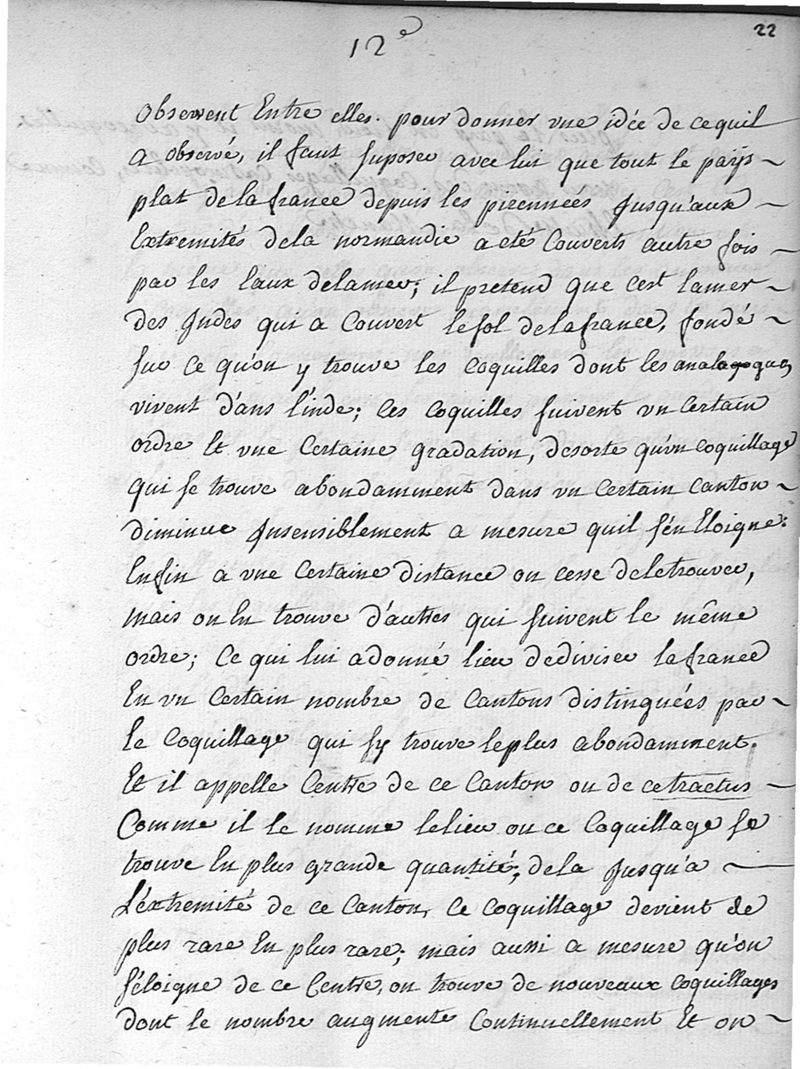 22
12e
observent Entre elles. pour donner vne idée de cequil
a observé, il faut suposer avec lui que tout le paÿs
plat de la france depuis les pirennées Jusqu'aux
Extremités de la normandie a eté Couverts autre fois
par les Eaux delamer; il pretend que c'est lamer
des Indes qui a Couvert lesol delafrance, fondé
sur ce qu'on y trouve les coquilles dont les analogques
vivent d'ans l'inde; Ces coquilles suivent vn Certain
ordre Et vne Certaine gradation, desorte qu'vn coquillage
qui se trouve abondamment dans vn Certain Canton
diminue Insensiblement a mesure quil s'én Eloigne.
Enfin a vne Certaine distance on cesse deletrouver,
mais on En trouve d'autres qui suivent le même
ordre; Ce qui lui adonné lieu dediviser lafrance
En vn Certain nombre de Cantons distinguées par
le Coquillage qui sy trouve leplus abondamment.
Et il appelle Centre de ce Canton ou de cetractus
Comme il le nomme lelieu ou ce Coquillage se
trouve En plus grande quantité; dela Jusqu'a
L'éxtremité de ce Canton, Ce coquillage devient de
plus rare En plus rare; mais aussi a mesure qu'on
s'éloigne de ce Centre, on trouve de nouveaux coquillages
dont le nombre augmente Continuellement Et on